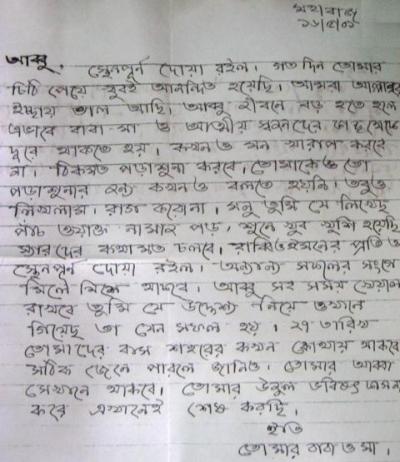 ১৮/৫/০১
আব্বু,
স্নেহপূর্ন দোয়া রইল। গত দিন তোমার
চিঠি পেয়ে খুবই আনন্দিত হয়েছি। আমরা আল্লাহর
ইচ্ছায় ভাল আছি। আব্বু জীবনে বড় হতে হলে
এভাবে বাবা-মা ও আত্মীয় স্বজনদের কাছ থেকে
দূরে থাকতে হয়। কখনও মন খারাপ করবে
না। ঠিকমত পড়াশুনা করবে, তোমাকেও তো
পড়াশুনার জন্য কখনও বলতে হয়নি। তবুও
লিখলাম। রাগ করোনা। তুমি যে লিখেছ
পাঁচ ওয়াক্ত নামাজ পড়, শুনে খুব খুশি হয়েছি
স্যারদের কথামত চলবে। প্রতি ও
স্নেহপূর্ন দোয়া রইল। অন্যান্য সকলের সংগে
মিলে মিশে থাকবে। আব্বু সব সময় খেয়াল
রাখবে তুমি যে উদ্দেশ্য নিয়ে ওখানে
গিয়েছ তা যেন সফল হয়। ২৭ তারিখ
তোমাদের বাস শহরের কখন কোথায় থাকবে
সঠিক জেনে পারলে জানিও। তোমার আব্বা
সেখানে থাকবে। তোমার উজ্জল ভবিষ্যৎ কামনা
করে এখানেই শেষ করছি।
ইতি
তোমার বাবা ও মা।